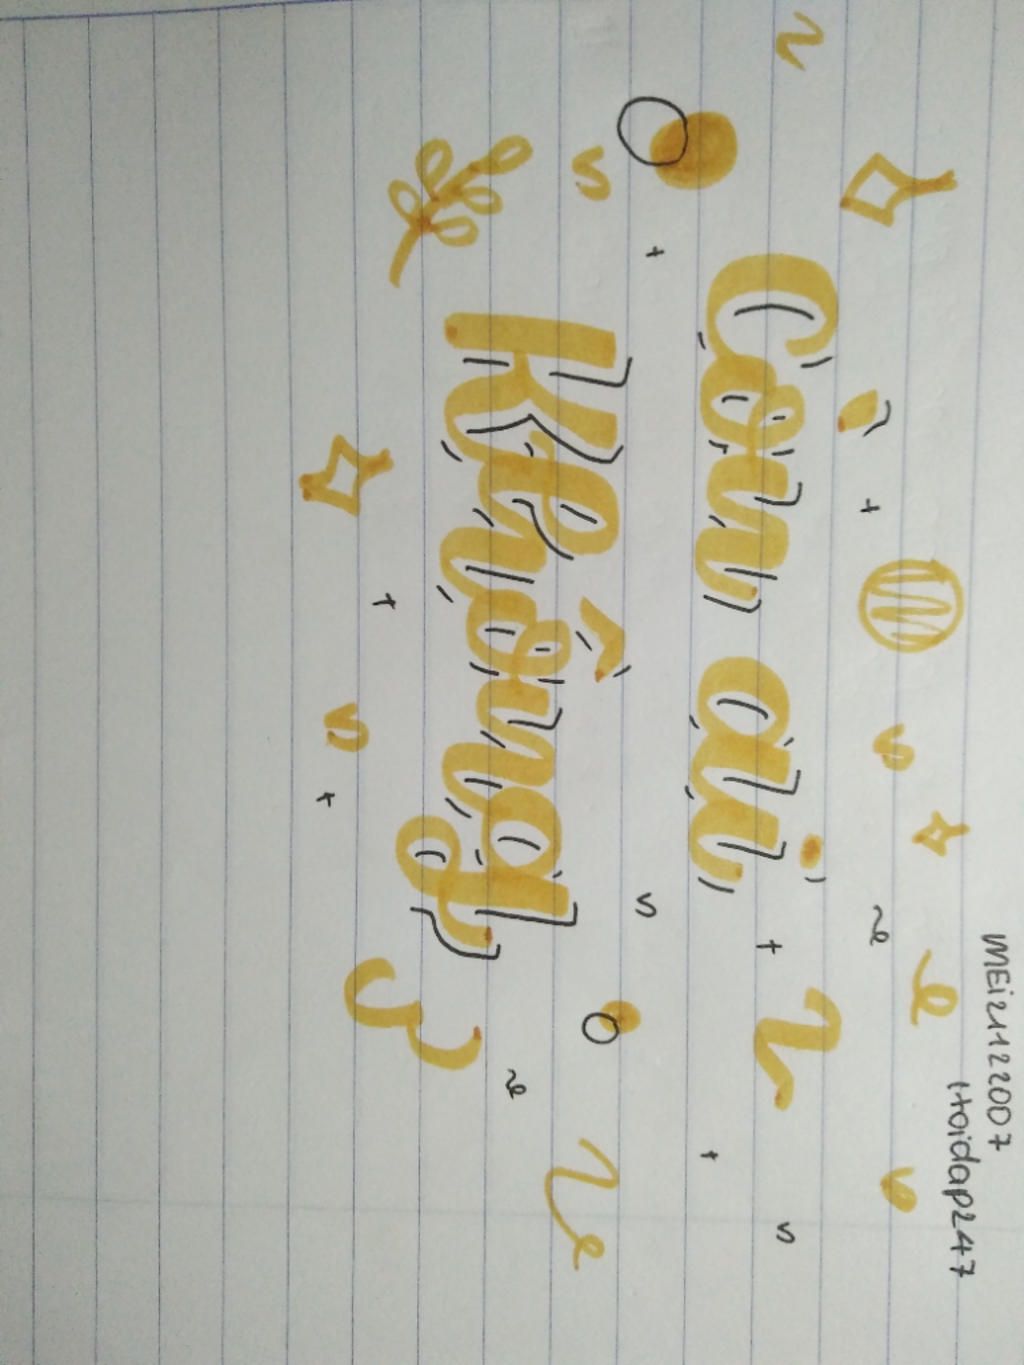 MEi21122007
Hoidap247
Còn ai
Không